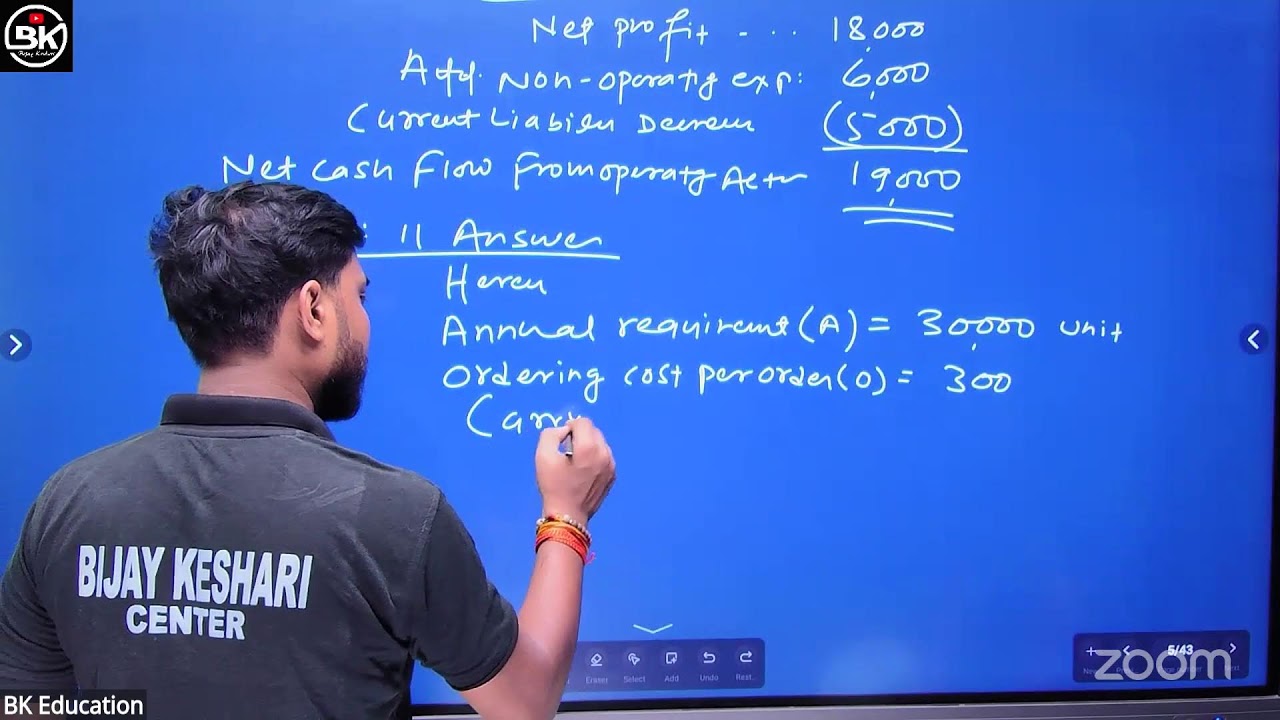 BK
Net profit - ... 18,000
Add. Non-operatig exp: 6,000
Current Liabilen Decrem (5000)
Net cash Flow From operatg Actn 19,000
: 11 Answer
Heren
Annual requirment (A) = 30,000 unit
Ordering cost per order (O) = 300
Carry
BIJAY KESHARI
CENTER
Eraser Select Add Undo Rest..
5/43
zoom
BK Education